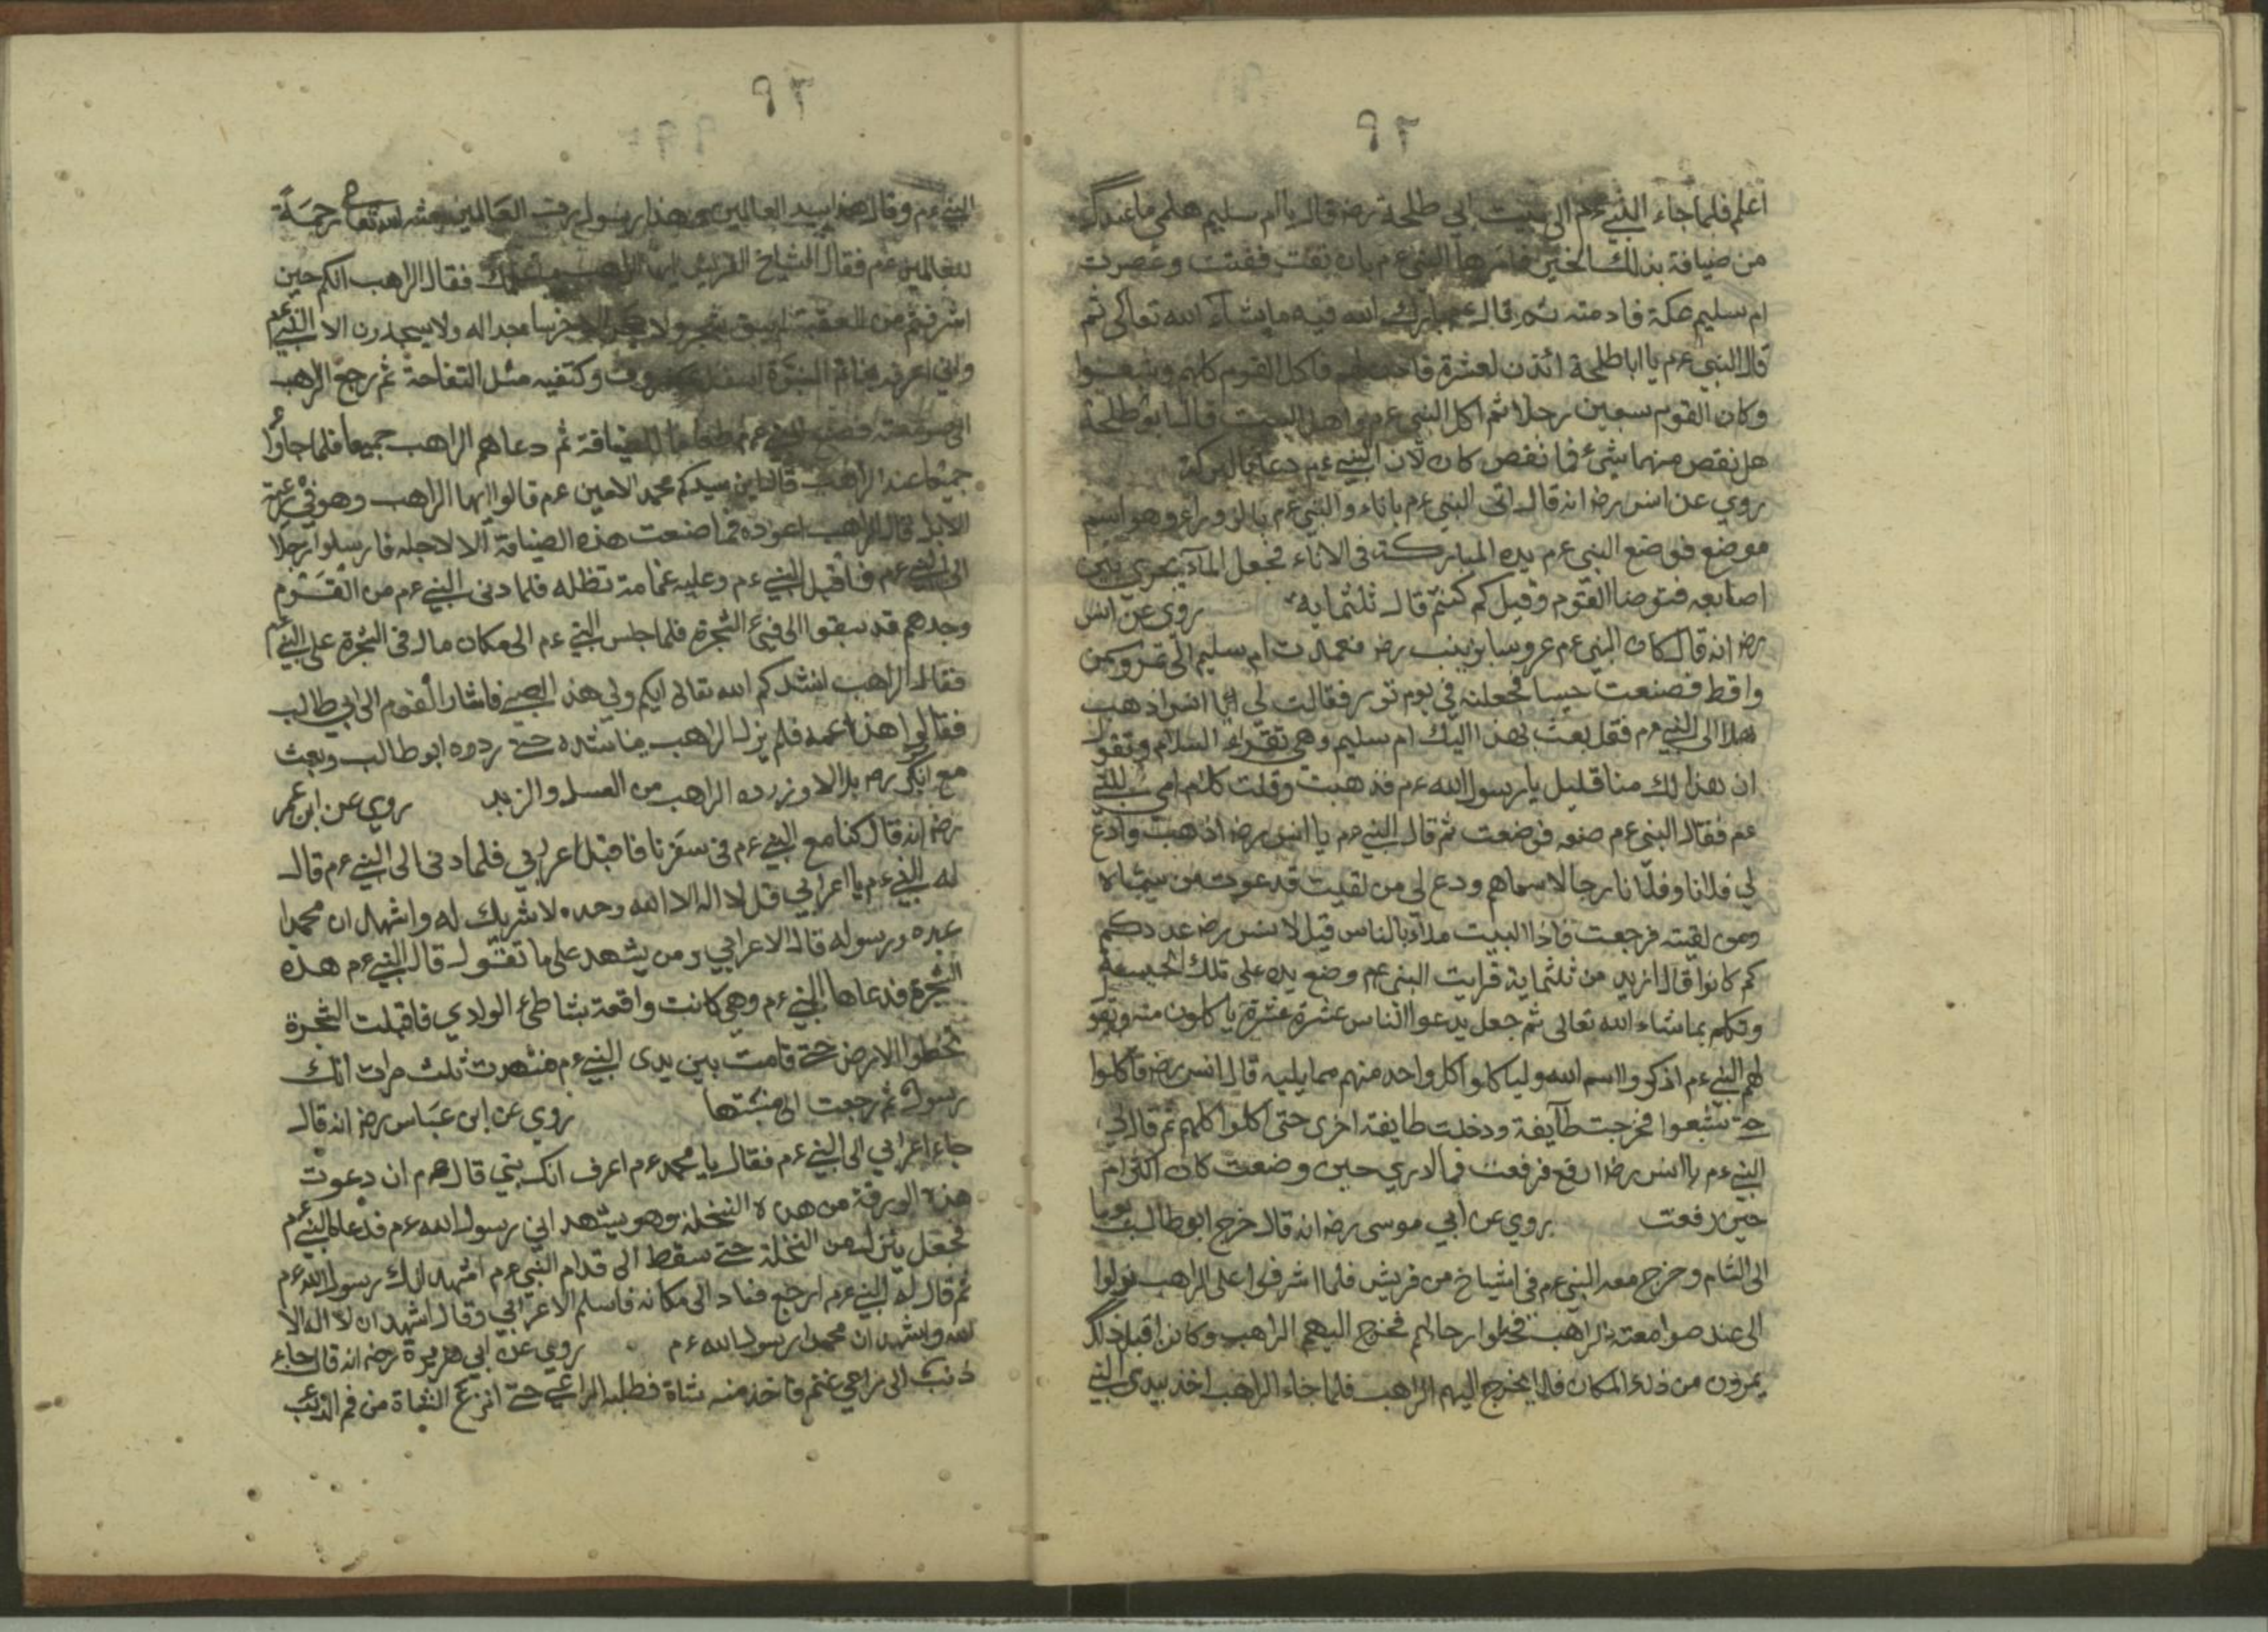 ٩٢
اعلم فلما جاء النبي عم الى بيت ابي طلحة رضه قال يا ام سليم هلمي ما عندك
من ضيافة بذلك الخبز فامرها النبي عم بان تفت ففتت وعصرت
ام سليم عكة فادمته ثم قال عم بارك الله فيه ما يشاء الله تعالى ثم
قال النبي عم يا ابا طلحة ائذن لعشرة فاكل القوم كلهم وشبعوا
وكان القوم سبعين رجلا ثم اكل النبي عم واهل البيت قال ابو طلحة
هل نقص منها شيء فما نقص كان لان النبي عم دعا بالبركة
روي عن انس رضه انه قال اتى النبي عم باناء والنبي عم بالزوراء وهو اسم
موضع فوضع النبي عم يده المباركة في الاناء فجعل الماء يجري بين
اصابعه فتوضا القوم وقيل كم كنتم قال ثلثمايه روي عن انس
رضه انه قال كان النبي عم عروسا بزينب رضه فعمدت ام سليم الى تمر وسمن
واقط فصنعت حيسا فجعلته في تور فقالت لي يا انس اذهب
بهذا الى النبي عم فقل بعث بهذا اليك ام سليم وهي تقراء السلام وتقول
ان هذا لك منا قليل يا رسول الله عم فذهبت وقلت كلام امي للنبي
عم فقال النبي عم ضعه فوضعت ثم قال النبي عم يا انس رضه اذهب وادع
لي فلانا وفلانا رجالا سماهم ودع لي من لقيت فدعوت من سماه
ومن لقيته فرجعت فاذا البيت ملاء بالناس قيل لانس رضه عددكم
كم كانوا قال ازيد من ثلثماية فرايت النبي عم وضع يده على تلك الحيسة
وتكلم بما شاء الله تعالى ثم جعل يدعوا الناس عشرة عشرة ياكلون منه ويقول
لهم النبي عم اذكروا اسم الله ولياكلوا كل واحد منهم مما يليه قال انس رضه فاكلوا
حتى شبعوا فخرجت طآيفة ودخلت طايفة اخرى حتى اكلوا كلهم ثم قال لي
النبي عم يا انس رضه ارفع فرفعت فما ادري حين وضعت كان اكثر ام
حين رفعت روي عن ابي موسى رضه انه قال خرج ابو طالب يوما
الى الشام وخرج معه النبي عم في اشياخ من قريش فلما اشرفوا على الراهب نزلوا
الى عند صوامعة الراهب فحلوا رحالهم فخرج اليهم الراهب وكانوا قبل ذلك
يمرون من ذلك المكان فلا يخرج اليهم الراهب فلما جاء الراهب اخذ بيدي النبي
٩٢
النبي عم وقال هذا سيد العالمين هذا رسول رب العالمين بعثه الله تعالى رحمة
للعالمين عم فقال اشياخ القريش ايها الراهب ما علمك فقال الراهب انكم حين
اشرفتم من العقبة لم يبق شجر ولا حجر الا خر ساجدا له ولا يسجدون الا النبي عم
واني اعرفه بخاتم النبوة اسفل وكتفيه مثل التفاحة ثم رجع الراهب
الى صومعته فصنع للنبي عم طعاما للضيافة ثم دعاهم الراهب جميعا فلما جاؤا
جميعا عند الراهب قال اين سيدكم محمد الامين عم قالوا ايها الراهب وهو في رعية
الابل قال الراهب ادعوه فما صنعت هذه الضيافة الا لاجله فارسلوا رجلا
الى النبي عم فاقبل النبي عم وعليه غمامة تظله فلما دنى النبي عم من القوم
وجدهم قد سبقوا الى فيئ الشجرة فلما جلس النبي عم الى مكان مال فئ الشجرة على النبي عم
فقال الراهب انشدكم الله تعالى ايكم ولي هذا الصبي فاشار القوم الى ابي طالب
فقالوا هذا عمه فلم يزل الراهب يناشده حتى ردوه ابو طالب وبعث
مع ابي بكر رضه بلالا وزوده الراهب من العسل والزيد روي عن ابن عمر
رضه انه قال كنا مع النبي عم في سفرنا فاقبل اعرابي فلما دنى الى النبي عم قال
له النبي عم يا اعرابي قل لا اله الا الله وحده لا شريك له واشهد ان محمدا
عبده ورسوله قال الاعرابي ومن يشهد على ما تقول قال النبي عم هذه
الشجرة فدعاها النبي عم وهي كانت واقعة بشاطئ الوادي فاقبلت الشجرة
تخطوا الارض حتى قامت بين يدى النبي عم فشهدت ثلث مرات انك
رسول ثم رجعت الى منبتها روي عن ابن عباس رضه انه قال
جاء اعرابي الى النبي عم فقال يا محمد عم اعرف انك نبي قال عم ان دعوت
هذه الورقة من هذه النخلة وهو يشهد اني رسول الله عم فدعا النبي عم
فجعل ينزل من النخلة حتى سقط الى قدام النبي عم اشهد انك رسول الله عم
ثم قال له النبي عم ارجع فعاد الى مكانه فاسلم الاعرابي وقال اشهد ان لا اله الا
الله واشهد ان محمدا رسول الله عم روي عن ابي هريرة رضه انه قال جاء
ذئب الى راعي غنم فاخذ منه شاة فطلبه الراعي حتى انزع الشاة من فم الذئب